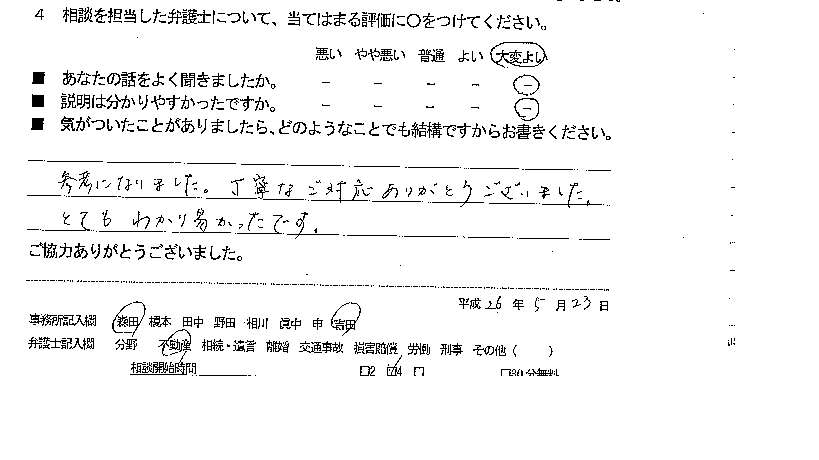 4 相談を担当した弁護士について、当てはまる評価に〇をつけてください。
悪い やや悪い 普通 よい 大変よい
■ あなたの話をよく聞きましたか。 － － － － －
■ 説明は分かりやすかったですか。 － － － － －
■ 気がついたことがありましたら、どのようなことでも結構ですからお書きください。
参考になりました。丁寧なご対応ありがとうございました。
とてもわかり易かったです。
ご協力ありがとうございました。
平成 26 年 5 月 23 日
事務所記入欄 森田 榎本 田中 野田 相川 眞中 申 吉田
弁護士記入欄 分野 不動産 相続・遺言 離婚 交通事故 損害賠償 労働 刑事 その他（ ）
相談開始時間 □2 ☑4 □ □30分無料